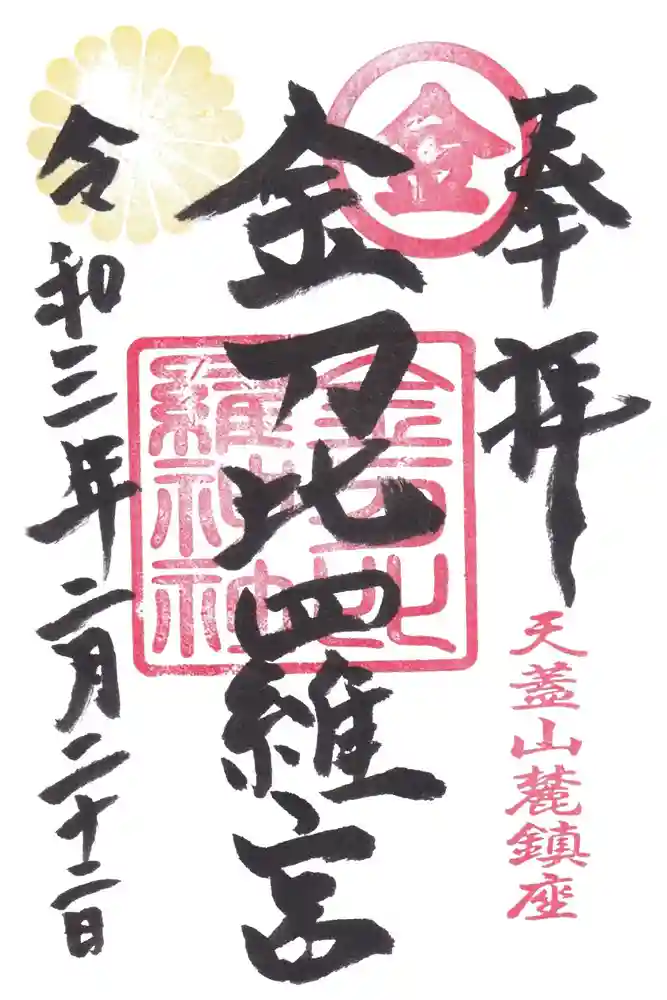 奉拝
天蓋山麓鎮座
金
金刀比羅宮
令和三年二月二十二日